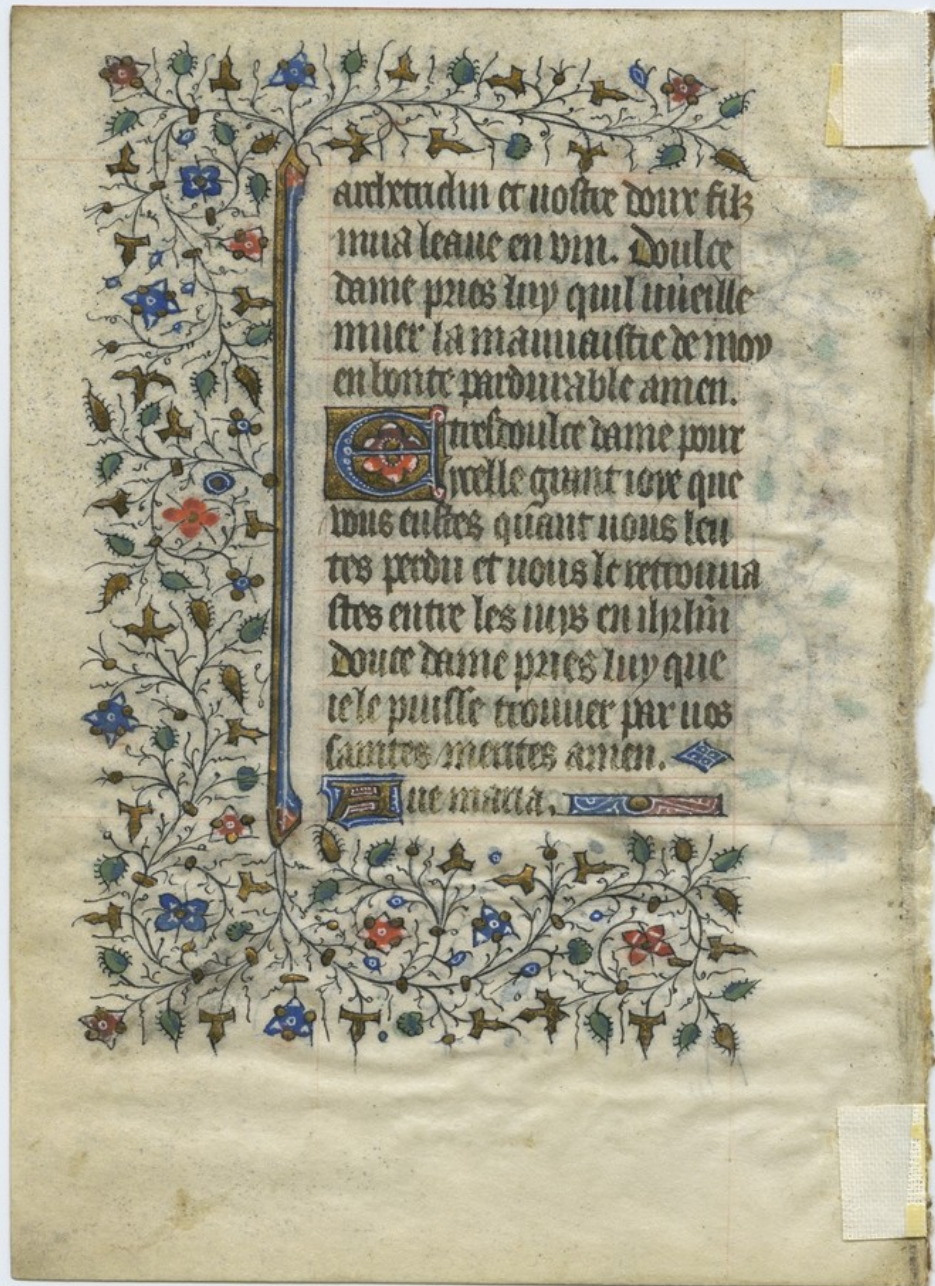 archetriclin et vostre doux filz
mua leaue en vin. Doulce
dame pries luy quil vueille
muer la mauuaistie de moy
en bonte pardurable amen.
E tresdoulce dame pour
ycelle grant ioye que
vous eustes quant vous leu
tes perdu et vous le retrouua
stes entre les iuys en ihrlm
douce dame pries luy que
ie le puisse trouuer par vos
saintes merites amen.
Aue maria.